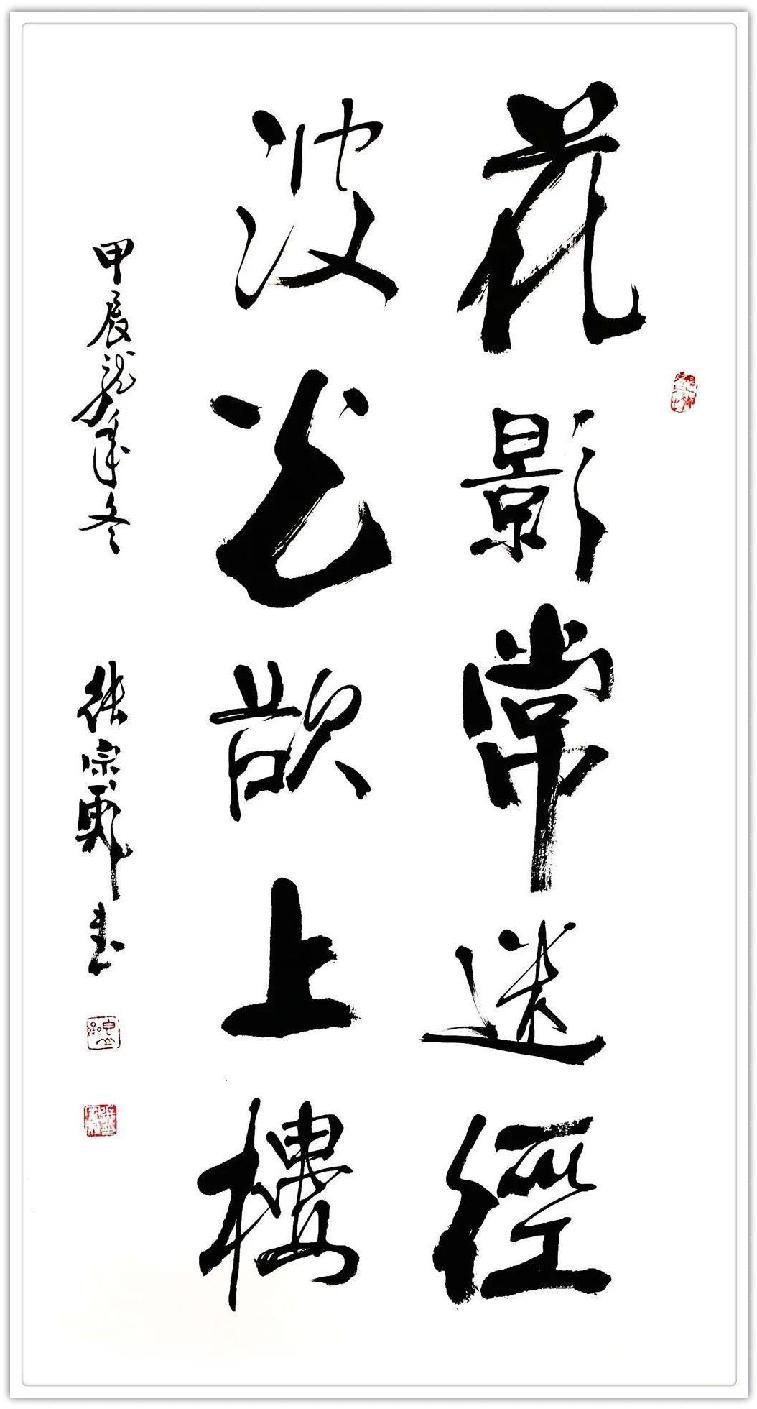 花影常迷徑
波光欲上樓
甲辰龍年冬 張宗彪書